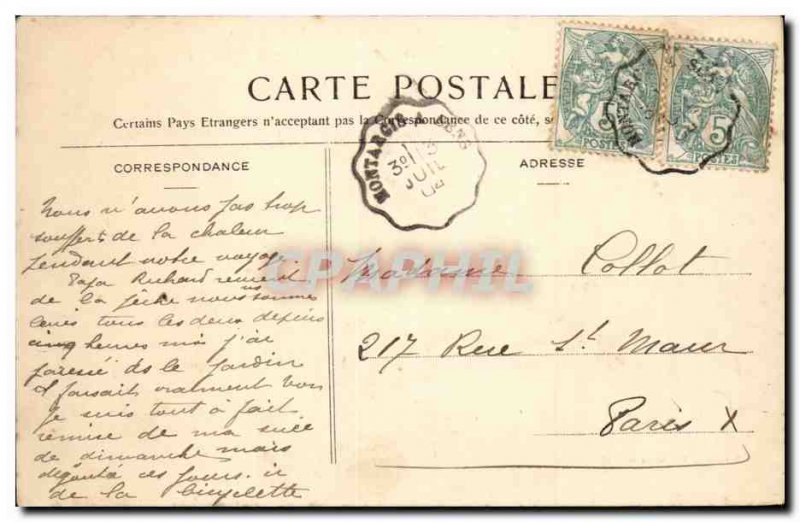 CARTE POSTALE
Certains Pays Etrangers n'acceptant pas la Correspondance de ce côté, se
CORRESPONDANCE
ADRESSE
MONTARGIS A SENS
3º
JUIL
5
POSTES
5
POSTES
Nous n'avons pas trop
souffert de la chaleur
pendant notre voyage
Papa Richard revient
de la pêche nous sommes
levés tous les deux depuis
cinq heures moi j'ai
paressé ds le jardin
il faisait vraiment bon
je suis tout à fait
remise de ma
de dimanche mais
dégoutée ces jours. ci
de la bicyclette
Madame Collot
217 Rue St Maur
Paris X
CPAPHIL